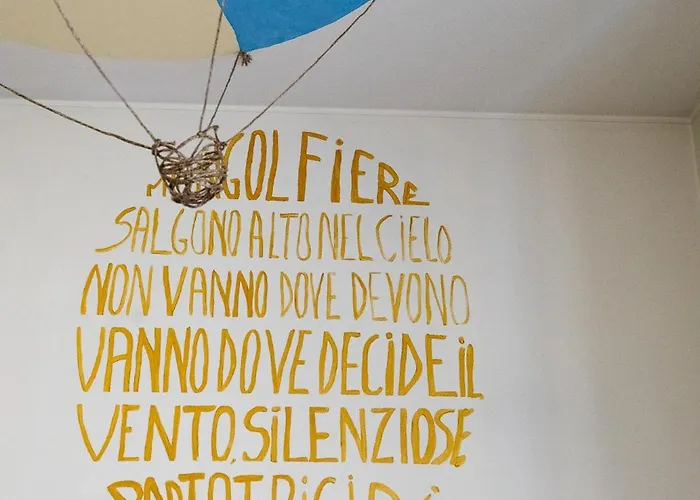 MONGOLFIERE
SALGONO ALTO NEL CIELO
NON VANNO DOVE DEVONO
VANNO DOVE DECIDE IL
VENTO, SILENZIOSE